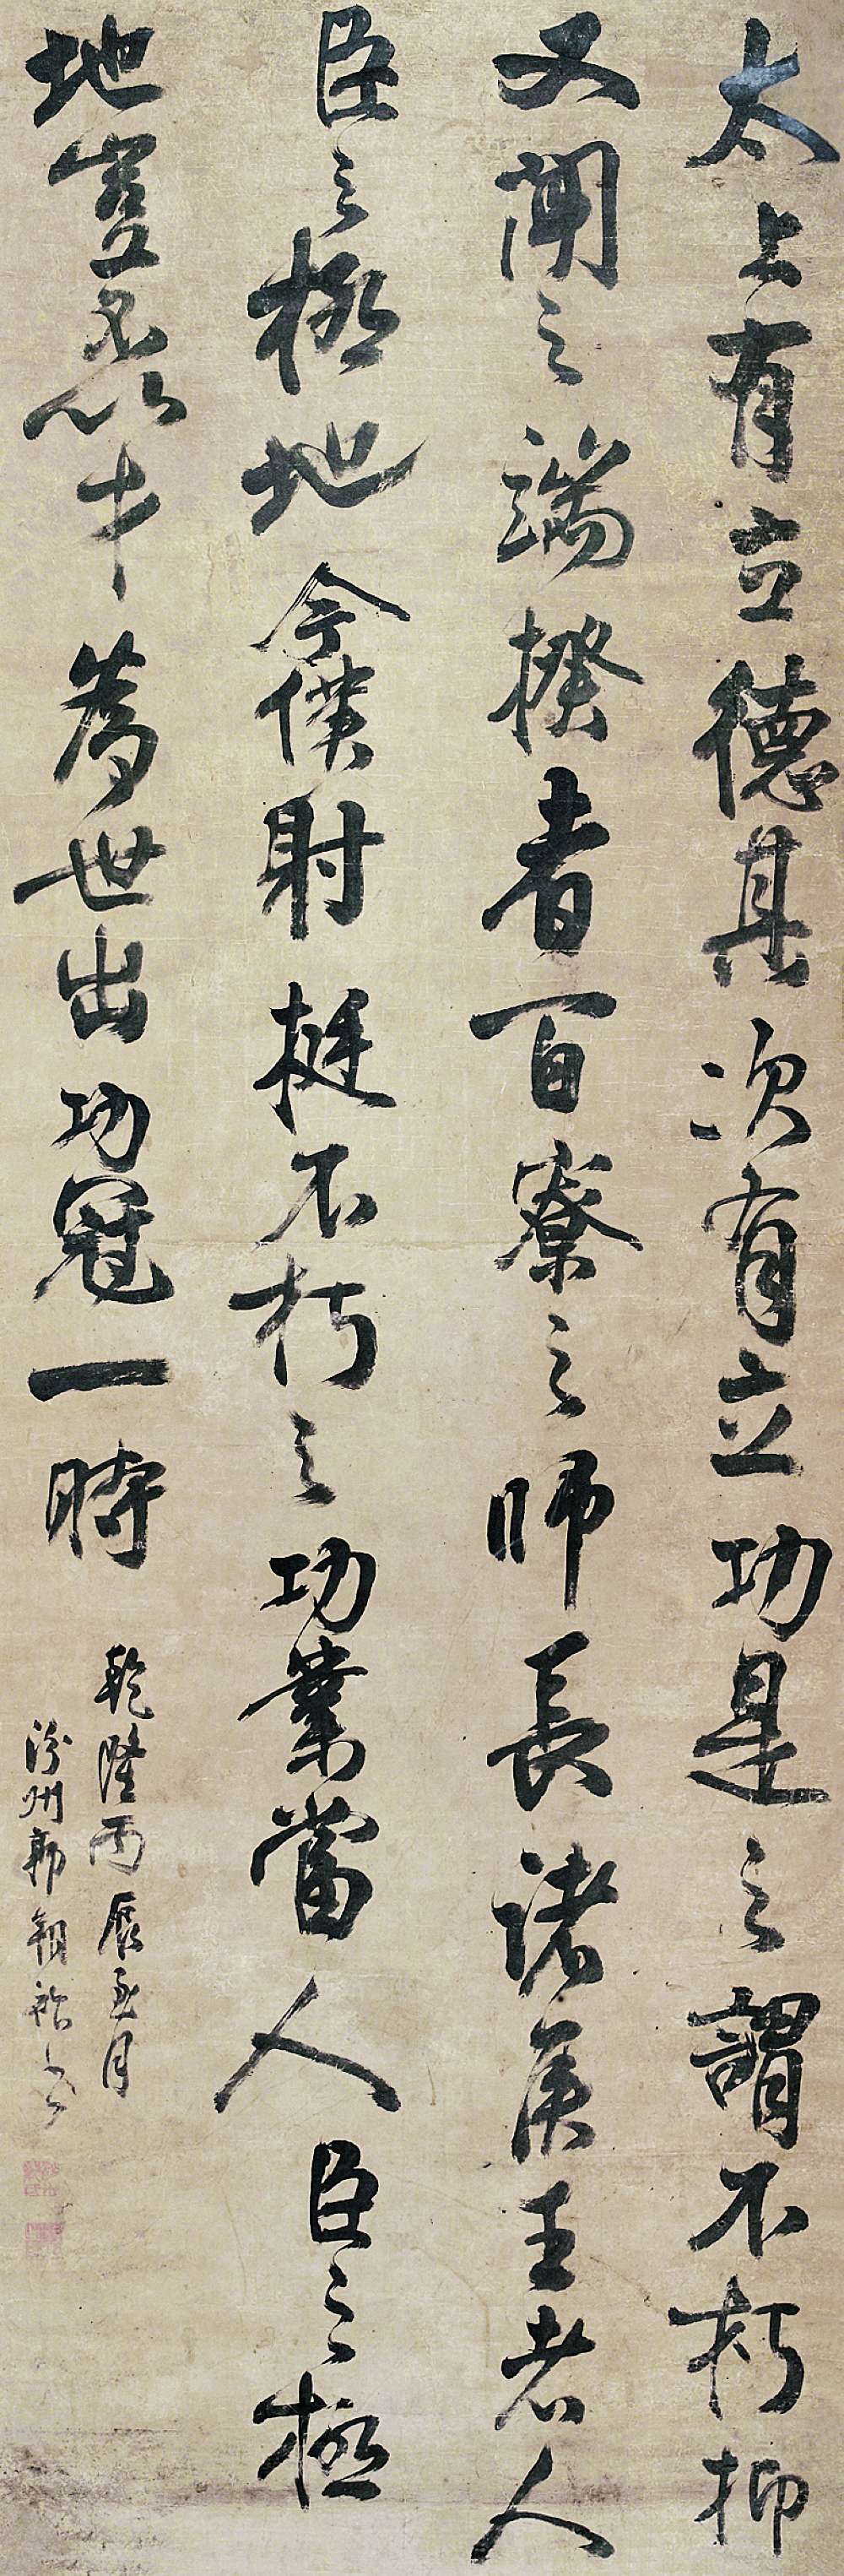 太上有立德其次有立功是之謂不朽抑
又聞之端揆者百寮之師長諸侯王者人
臣之極地今僕射挺不朽之功業當人臣之極
地豈不以才為世出功冠一時
乾隆丙辰 月
汾州郭朝祚書